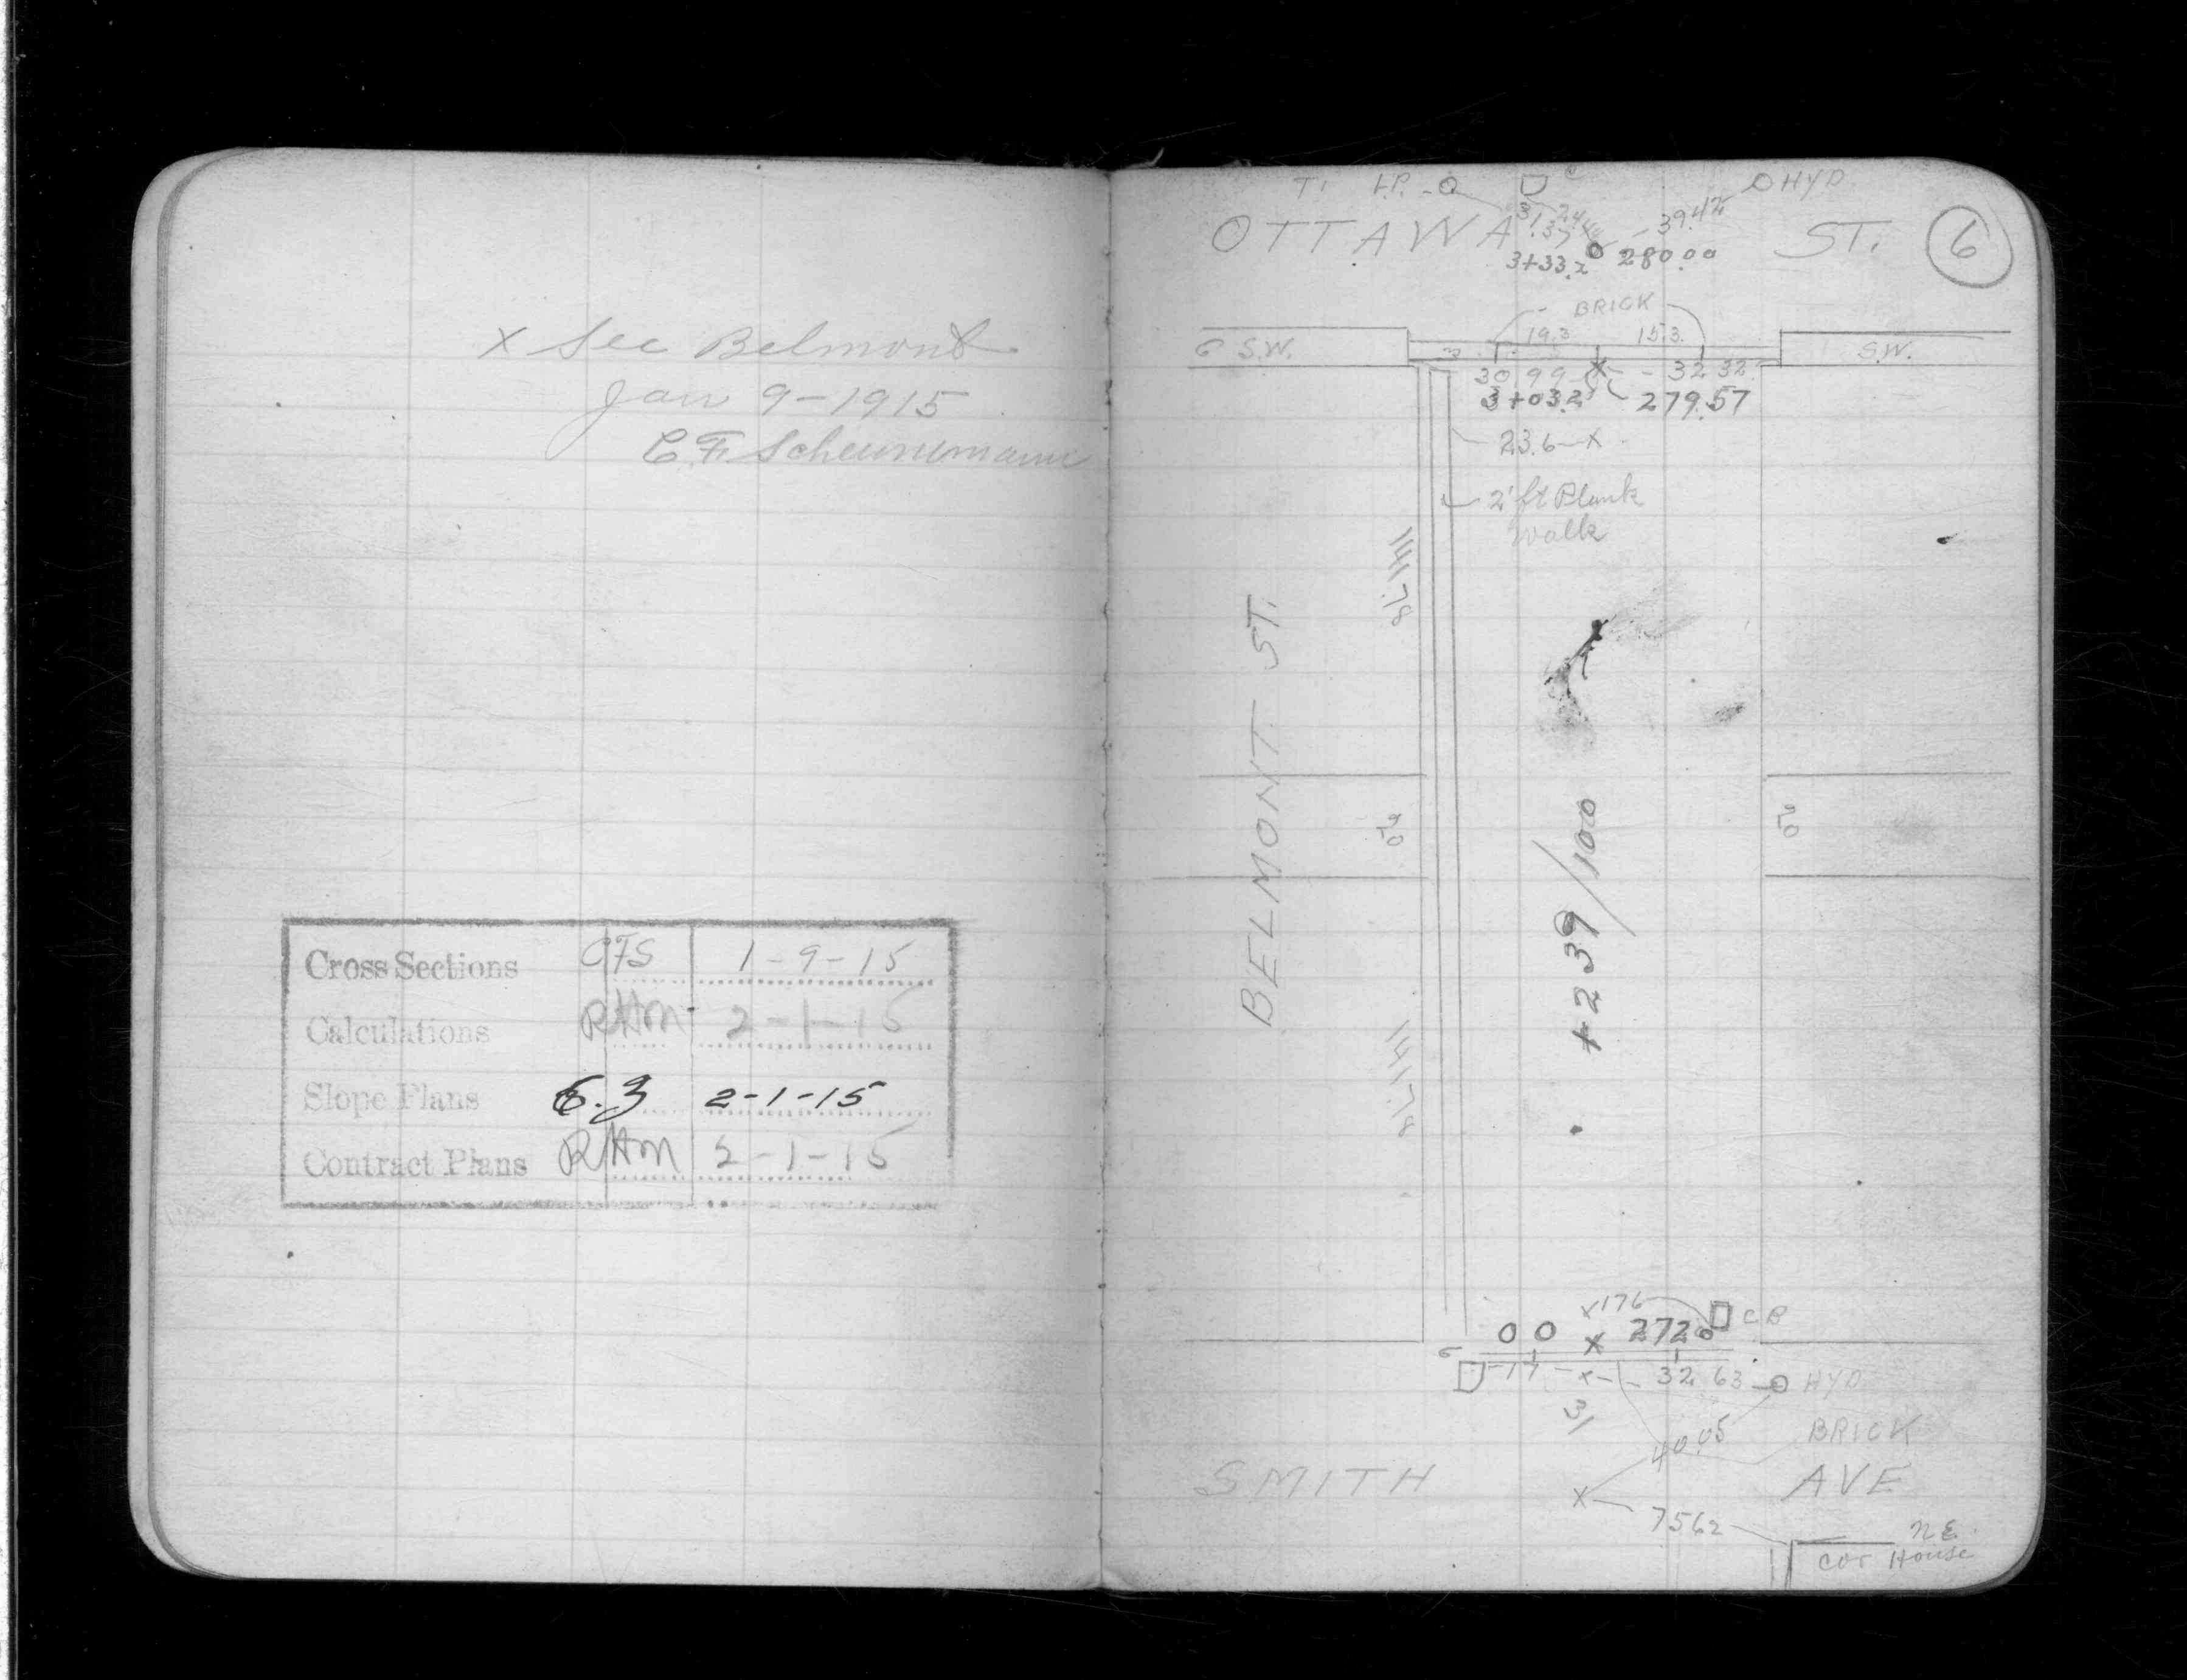 x Sec Belmont
Jan 9-1915
C.F. Scheunemann
Cross Sections CFS 1-9-15
Calculations RHM 2-1-15
Slope Plans 2-1-15
Contract Plans RHM 2-1-15
6
HYD
39.42
31.37
OTTAWA ST.
3+33.2 280.00
BRICK
19.3 15.3
6 S.W. S.W.
30.99 x 32.32
3+03.2 279.57
23.6 - x
2' ft Plank
Walk
BELMONT ST.
+ 2.39/100
20
20
x 17.6 CB
00 x 272.6
6
17 - x - 32.63 HYD
31
40.05 BRICK
SMITH AVE
x 75.62
N.E.
cor House